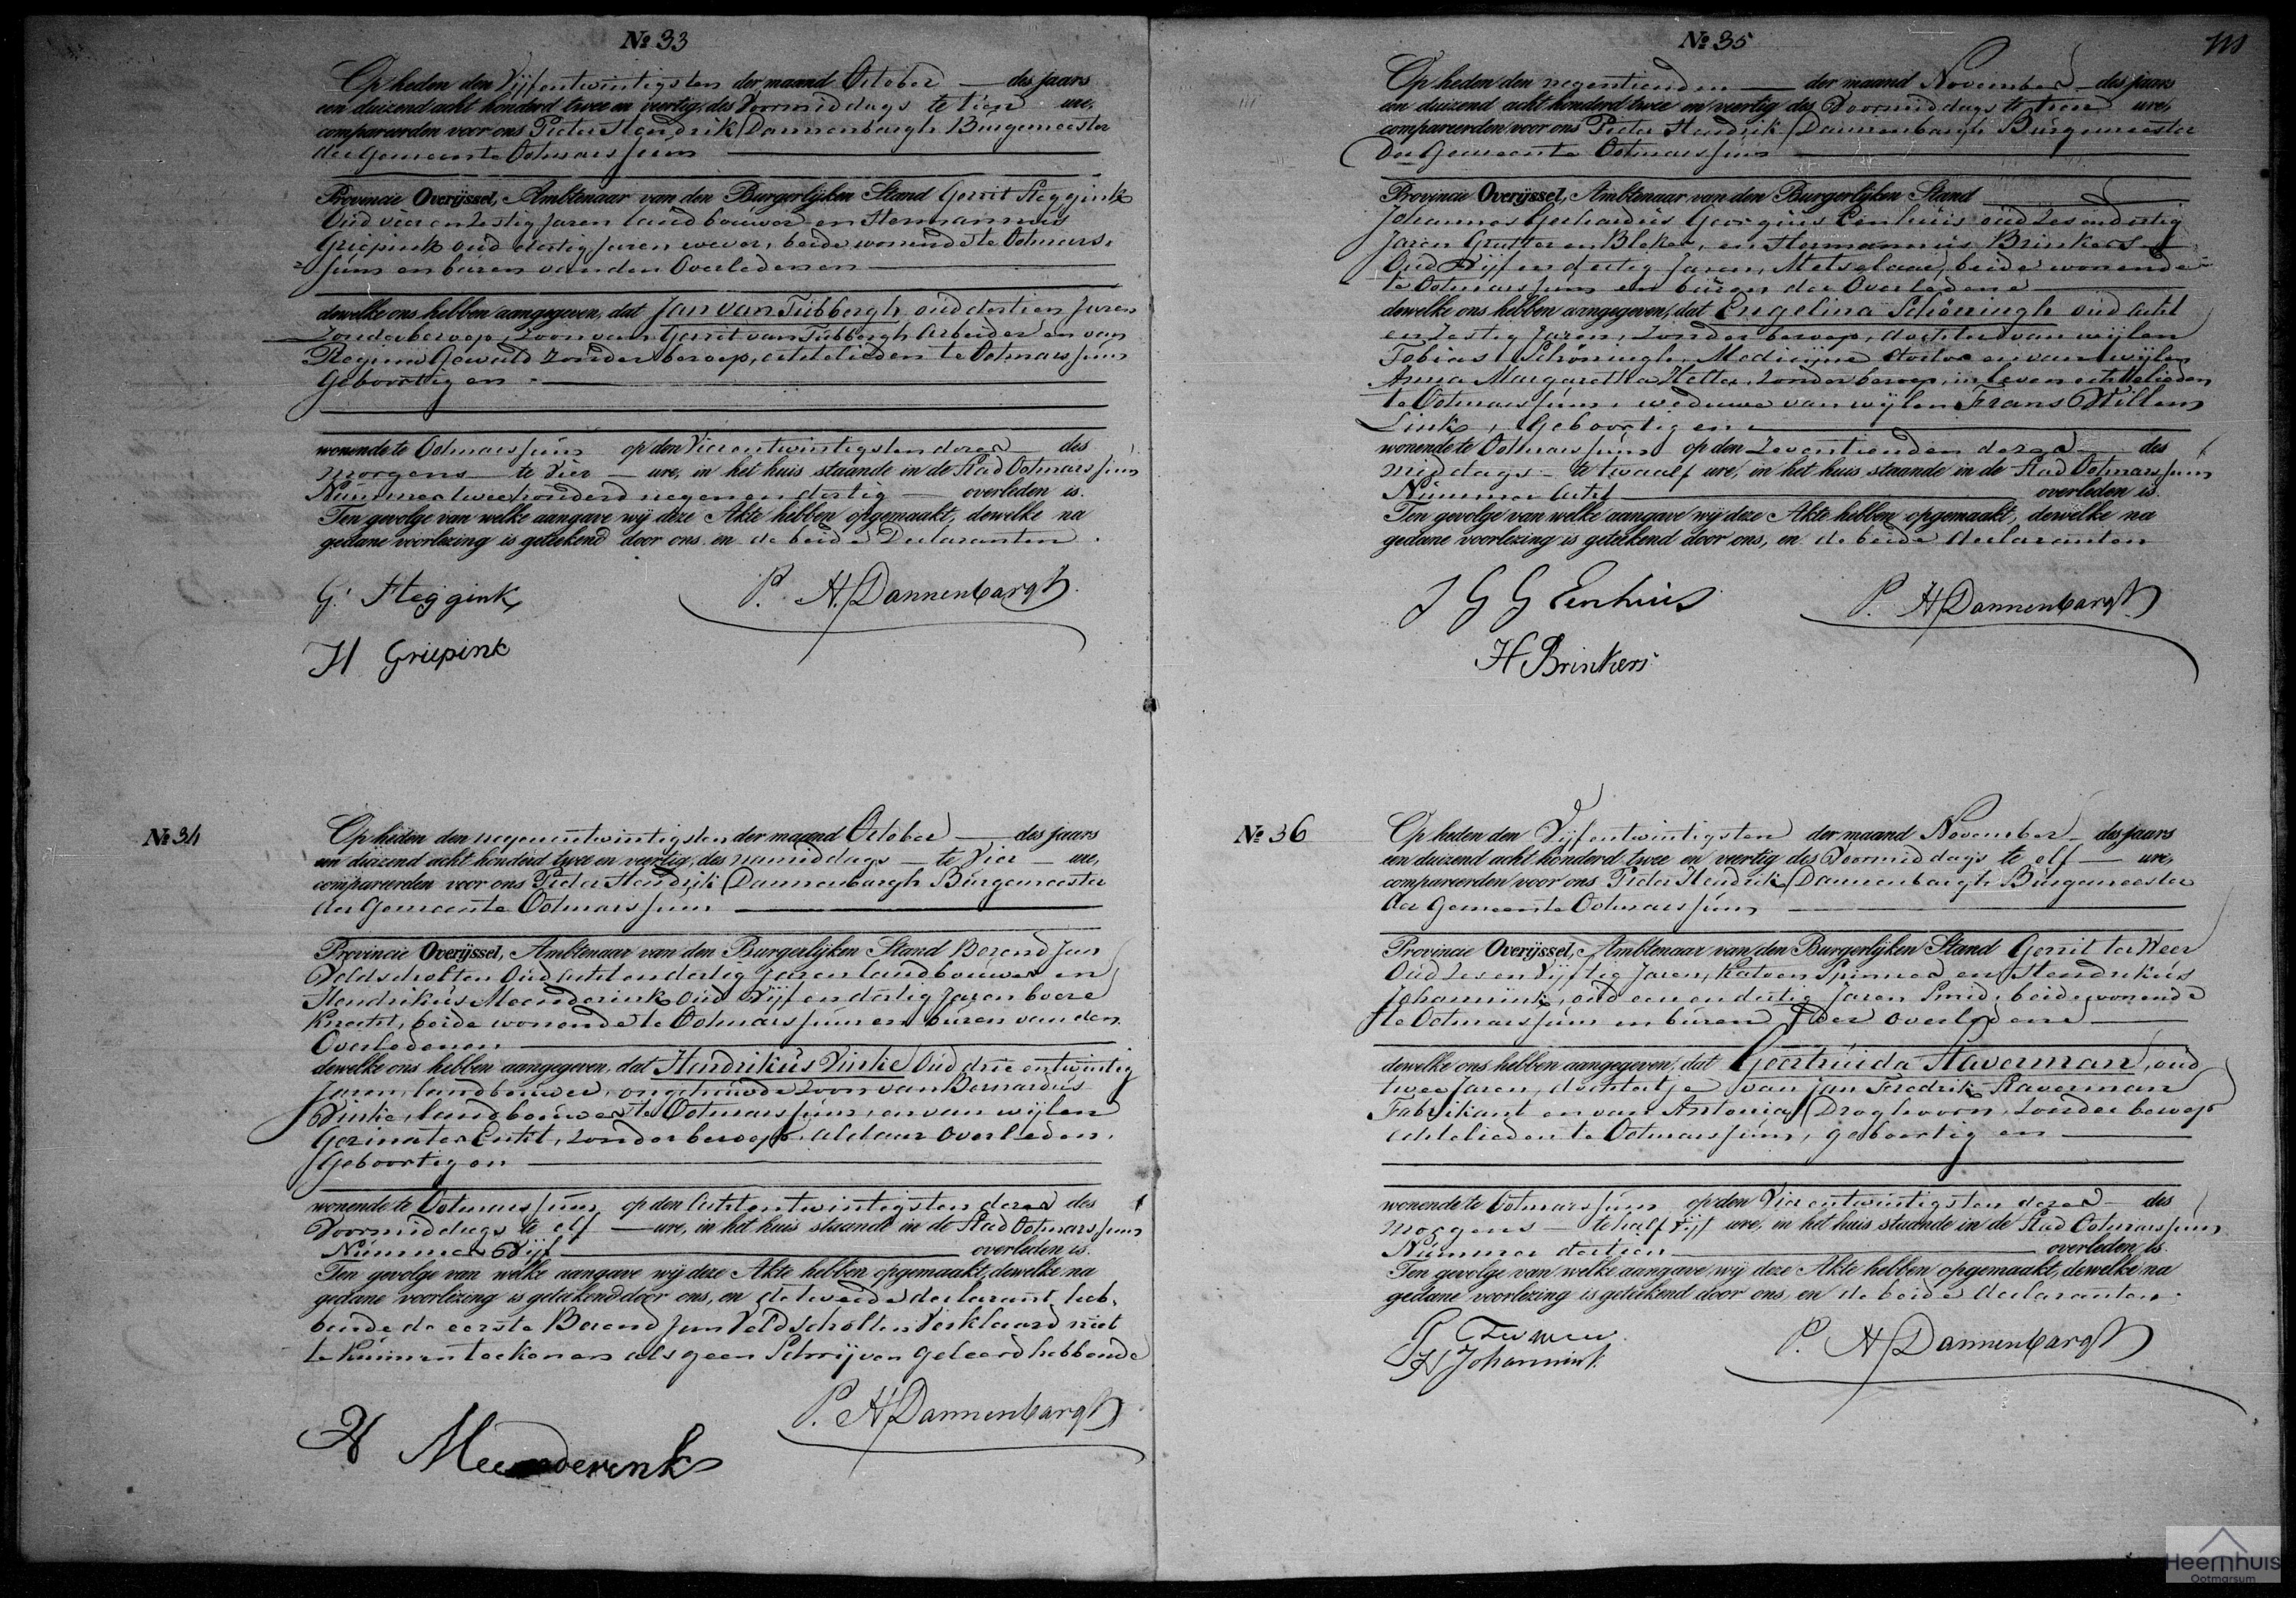 № 33
Op heden den Vijfentwintigsten der maand October des jaars
een duizend acht honderd twee en veertig, des Voormiddags te tien ure,
compareerden voor ons Pieter Hendrik Dannenbargh Burgemeester
der Gemeente Ootmarssum
Provincie Overijssel, Ambtenaar van den Burgerlijken Stand Gerrit Steggink
Oud vier en Zestig Jaren landbouwer en Hermannus
Griepink oud dertig Jaren wever, beide wonende te Ootmars-
sum en buren van den Overledenen
dewelke ons hebben aangegeven, dat Jan van Tubbergh oud dertien Jaren
Zonder beroep, Zoon van Gerrit van Tubbergh Arbeider en van
Gewald Zonder beroep, echtelieden te Ootmarssum
Geboortig en
wonende te Ootmarssum op den Vierentwintigsten dezer des
morgens te Vier ure, in het huis staande in de Stad Ootmarssum
Nummer twee honderd negen en dertig overleden is.
Ten gevolge van welke aangave wij deze Akte hebben opgemaakt, dewelke na
gedane voorlezing is geteekend door ons en de beide Declaranten.
G. Steggink
P. H. Dannenbargh
H Griepink
№ 34
Op heden den negenentwintigsten der maand October des jaars
een duizend acht honderd twee en veertig, des namiddags te Vier ure,
compareerden voor ons Pieter Hendrik Dannenbargh Burgemeester
der Gemeente Ootmarssum
Provincie Overijssel, Ambtenaar van den Burgerlijken Stand Berend Jan
Veldscholten Oud Acht en dertig Jaren landbouwer en
Hendrikus Meenderink oud Vijf en dertig Jaren boere
Knecht, beide wonende te Ootmarssum en buren van den
Overledenen
dewelke ons hebben aangegeven, dat Hendrikus Vinke Oud drie entwintig
Jaren, landbouwer, ongehuwde Zoon van Bernardus
Vinke, landbouwer te Ootmarssum, en van wijlen
Echt, zonder beroep, aldaar overleden.
Geboortig en
wonende te Ootmarssum op den Achtentwintigsten dezer des
Voormiddags te elf ure, in het huis staande in de Stad Ootmarssum
Nummer Vijf overleden is.
Ten gevolge van welke aangave wij deze Akte hebben opgemaakt, dewelke na
gedane voorlezing is geteekend door ons, en de tweede declarant heb-
bende de eerste Berend Jan Veldscholten Verklaard niet
te kunnen teekenen als geen Schrijven geleerd hebbende
P. H Dannenbargh
H Meenderink
№ 35
111
Op heden den negentienden der maand November des jaars
een duizend acht honderd twee en veertig des Voormiddags te tien ure,
compareerden voor ons Pieter Hendrik Dannenbargh Burgemeester
der Gemeente Ootmarssum
Provincie Overijssel, Ambtenaar van den Burgerlijken Stand
Johannes Gerhardus Georgius Eenhuis oud Zes en dertig
Jaren Grutter en Bleker, en Hermannus Brinkers
Oud Vijf en dertig Jaren, Metselaar, beide wonende
te Ootmarssum en buren der Overledene
dewelke ons hebben aangegeven, dat Engelina Schöningh oud acht
en Zestig Jaren, Zonder beroep, dochter van wijlen
Tobias Schöningh, Medicijne doctor en van wijlen
Anna Margaretha Zonder beroep, in leven echtelieden
te Ootmarssum, weduwe van wijlen Frans Willem
Geboortig en
wonende te Ootmarssum op den Zeventienden dezer des
middags te twaalf ure, in het huis staande in de Stad Ootmarssum
Nummer Acht overleden is.
Ten gevolge van welke aangave wij deze Akte hebben opgemaakt, dewelke na
gedane voorlezing is geteekend door ons, en de beide declaranten
J G G Eenhuis
P. H Dannenbargh
H Brinkers
№ 36
Op heden den Vijfentwintigsten der maand November des jaars
een duizend acht honderd twee en veertig des Voormiddags te elf ure,
compareerden voor ons Pieter Hendrik Dannenbargh Burgemeester
der Gemeente Ootmarssum
Provincie Overijssel, Ambtenaar van den Burgerlijken Stand Gerrit ter Weer
Oud Zes en Vijftig Jaren, Katoen Spinner en Hendrikus
Johannink, oud een en dertig Jaren Smid, beide wonende
te Ootmarssum en buren der overledene
dewelke ons hebben aangegeven, dat Geertruida Staverman, oud
twee Jaren, dochtertje van Jan Fredrik Staverman
Fabrikant en van Antonia Droghoorn, Zonder beroep
echtelieden te Ootmarssum, geboortig en
wonende te Ootmarssum op den Vierentwintigsten dezer des
morgens te half Vijf ure, in het huis staande in de Stad Ootmarssum
Nummer dertien overleden is.
Ten gevolge van welke aangave wij deze Akte hebben opgemaakt, dewelke na
gedane voorlezing is geteekend door ons, en de beide declaranten.
P. H Dannenbargh
H Johannink
Heemhuis
Ootmarsum